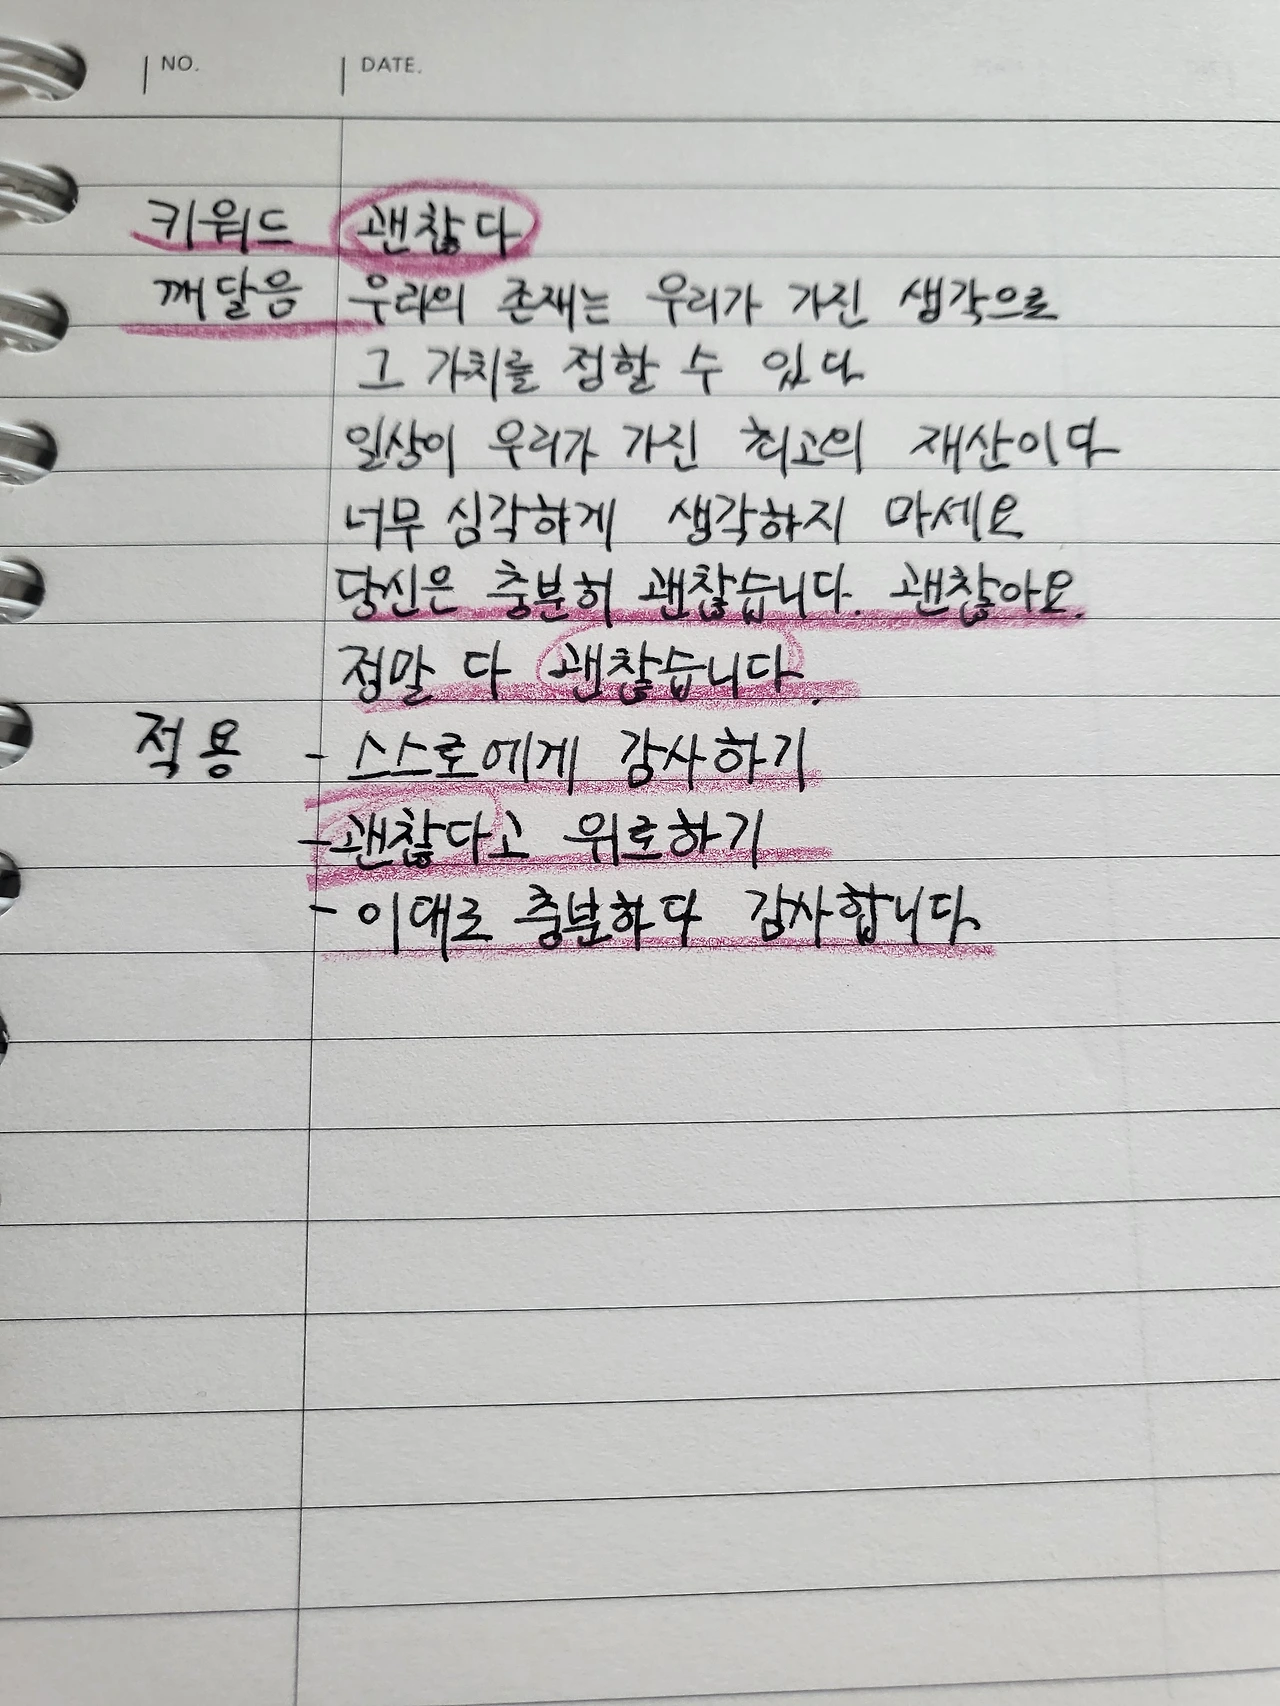 NO. DATE.
키워드 괜찮다
깨달음 우리의 존재는 우리가 가진 생각으로
그 가치를 정할 수 있다
일상이 우리가 가진 최고의 재산이다
너무 심각하게 생각하지 마세요
당신은 충분히 괜찮습니다. 괜찮아요.
정말 다 괜찮습니다.
적용 - 스스로에게 감사하기
- 괜찮다고 위로하기
- 이대로 충분하다 감사합니다.